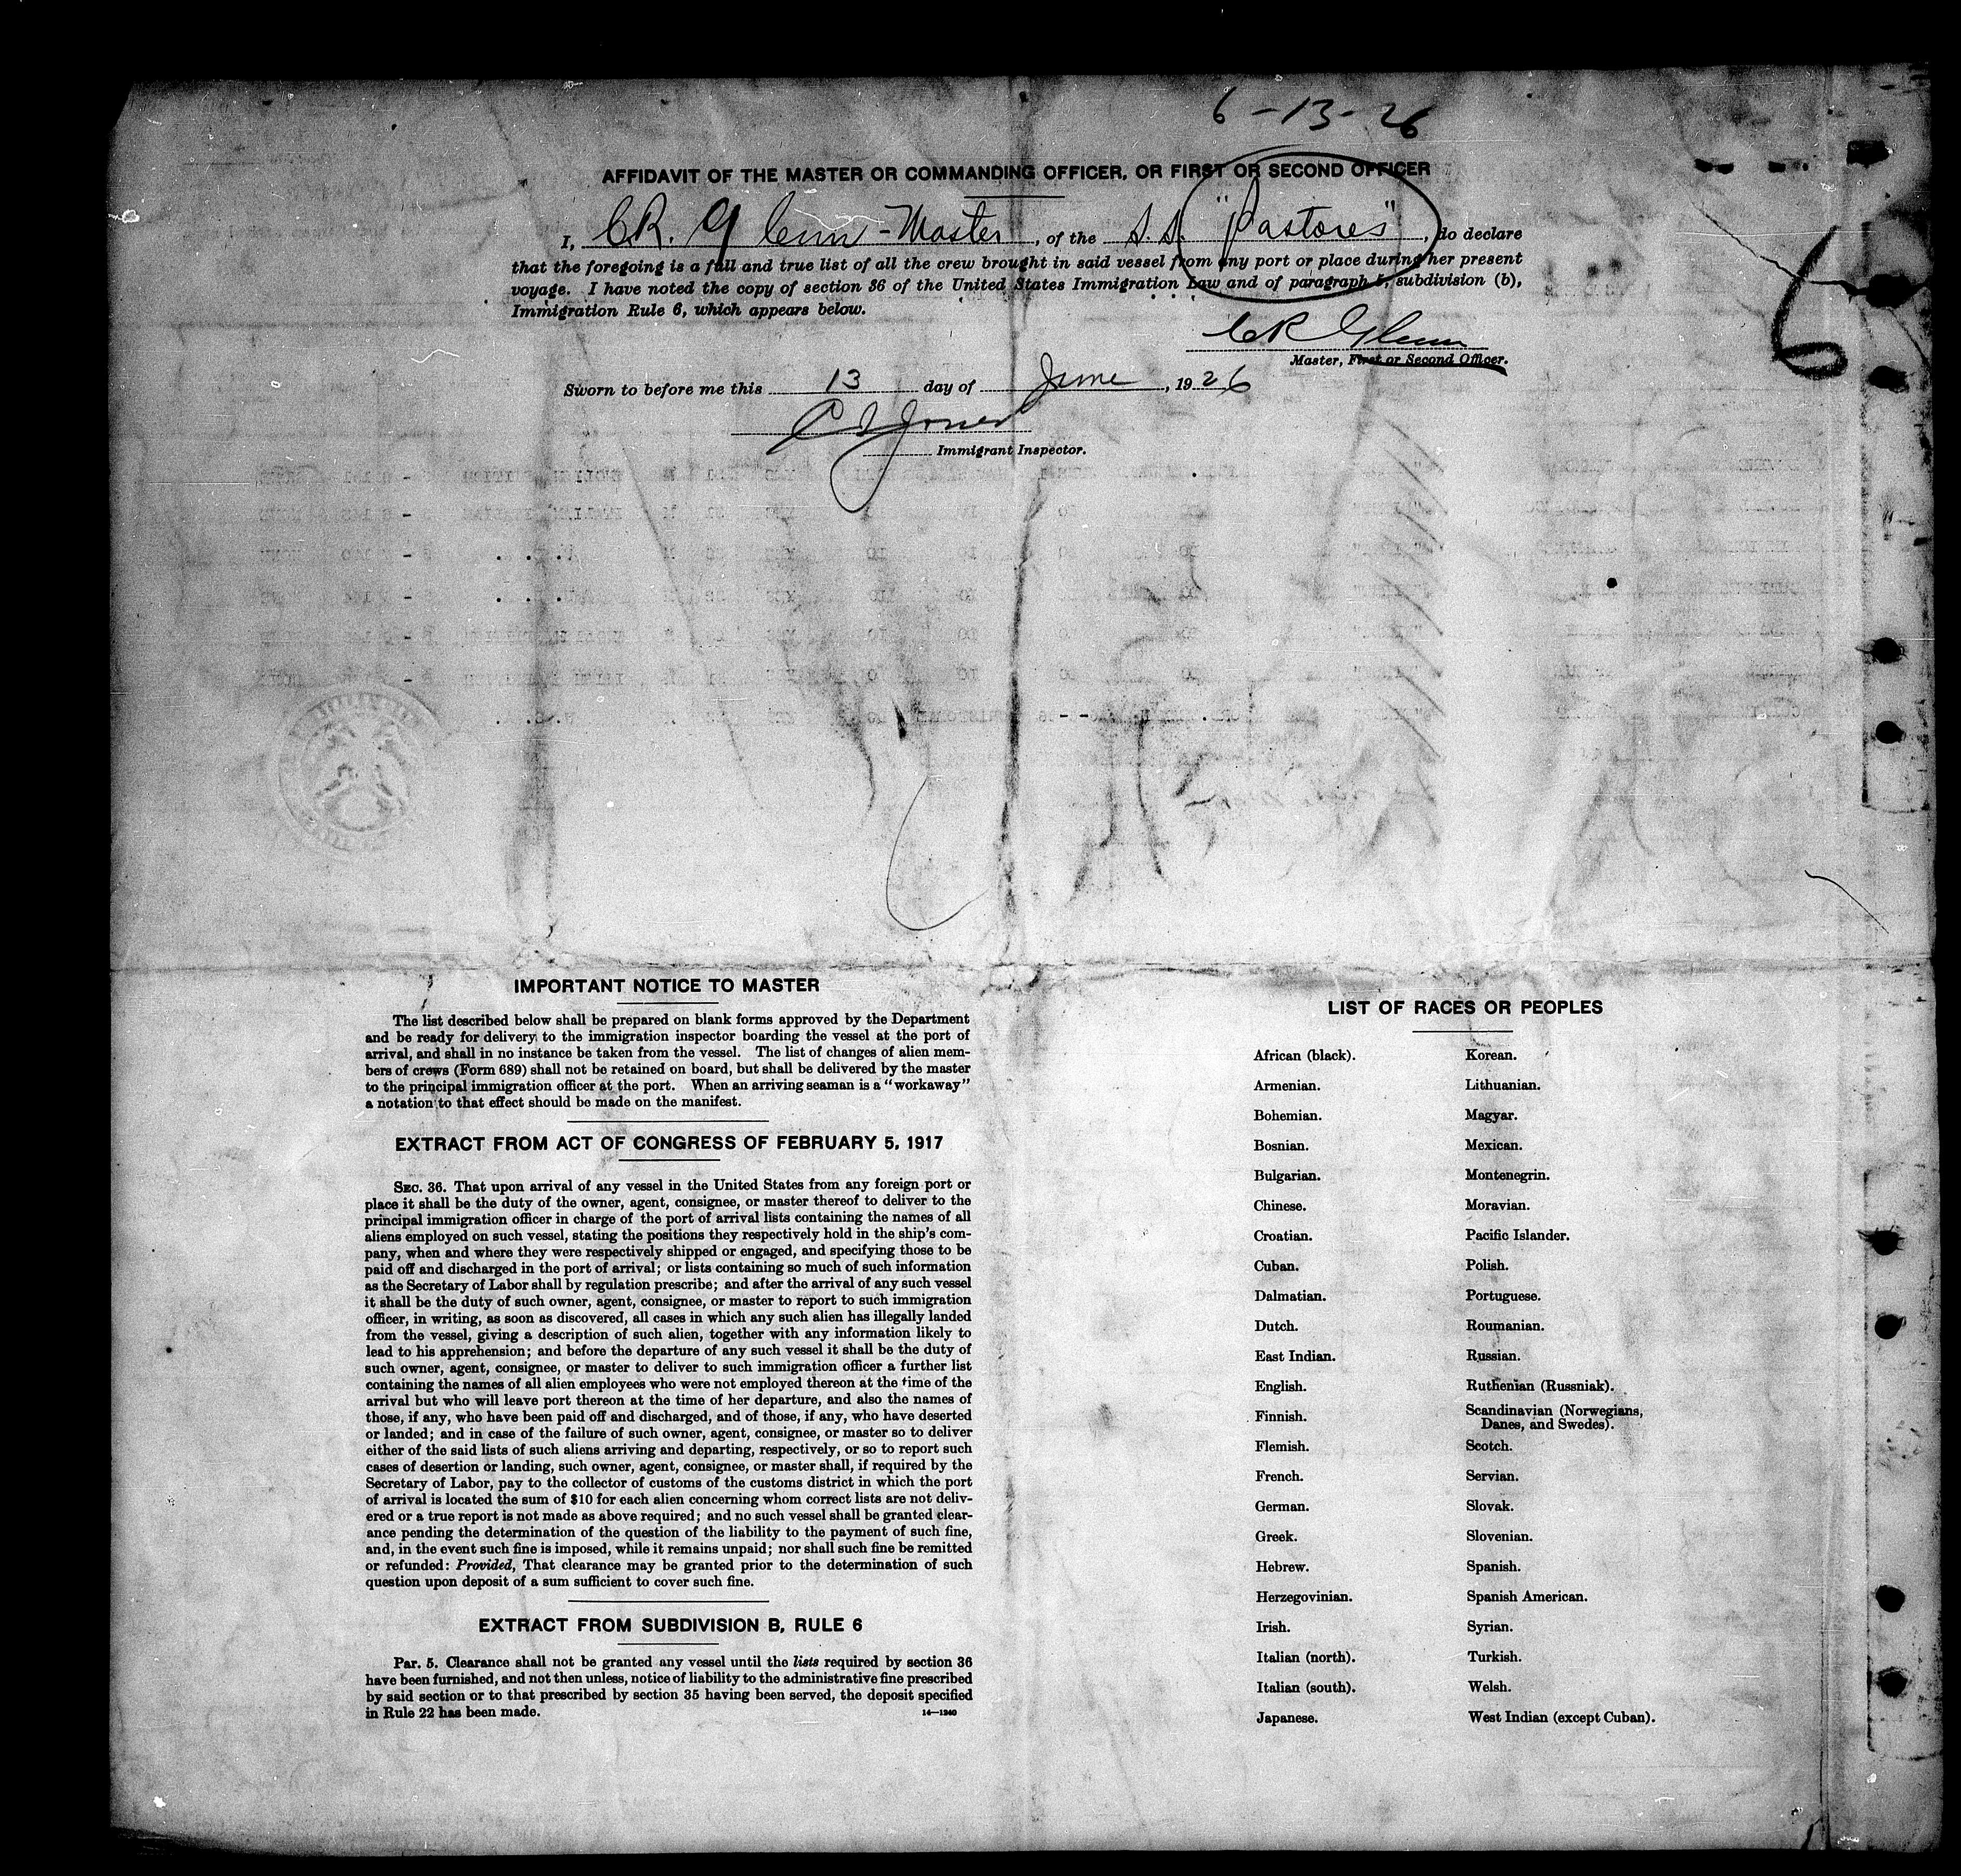 6-13-26
AFFIDAVIT OF THE MASTER OR COMMANDING OFFICER, OR FIRST OR SECOND OFFICER
I, C.R. Glenn - Master, of the S.S. "Pastores", do declare
that the foregoing is a full and true list of all the crew brought in said vessel from any port or place during her present
voyage. I have noted the copy of section 36 of the United States Immigration Law and of paragraph 5, subdivision (b),
Immigration Rule 6, which appears below.
6
CR Glenn
Master, First or Second Officer.
Sworn to before me this 13 day of June, 1926
Jones
Immigrant Inspector.
IMPORTANT NOTICE TO MASTER
The list described below shall be prepared on blank forms approved by the Department
and be ready for delivery to the immigration inspector boarding the vessel at the port of
arrival, and shall in no instance be taken from the vessel. The list of changes of alien mem-
bers of crews (Form 689) shall not be retained on board, but shall be delivered by the master
to the principal immigration officer at the port. When an arriving seaman is a "workaway"
a notation to that effect should be made on the manifest.
EXTRACT FROM ACT OF CONGRESS OF FEBRUARY 5, 1917
SEC. 36. That upon arrival of any vessel in the United States from any foreign port or
place it shall be the duty of the owner, agent, consignee, or master thereof to deliver to the
principal immigration officer in charge of the port of arrival lists containing the names of all
aliens employed on such vessel, stating the positions they respectively hold in the ship's com-
pany, when and where they were respectively shipped or engaged, and specifying those to be
paid off and discharged in the port of arrival; or lists containing so much of such information
as the Secretary of Labor shall by regulation prescribe; and after the arrival of any such vessel
it shall be the duty of such owner, agent, consignee, or master to report to such immigration
officer, in writing, as soon as discovered, all cases in which any such alien has illegally landed
from the vessel, giving a description of such alien, together with any information likely to
lead to his apprehension; and before the departure of any such vessel it shall be the duty of
such owner, agent, consignee, or master to deliver to such immigration officer a further list
containing the names of all alien employees who were not employed thereon at the time of the
arrival but who will leave port thereon at the time of her departure, and also the names of
those, if any, who have been paid off and discharged, and of those, if any, who have deserted
or landed; and in case of the failure of such owner, agent, consignee, or master so to deliver
either of the said lists of such aliens arriving and departing, respectively, or so to report such
cases of desertion or landing, such owner, agent, consignee, or master shall, if required by the
Secretary of Labor, pay to the collector of customs of the customs district in which the port
of arrival is located the sum of $10 for each alien concerning whom correct lists are not deliv-
ered or a true report is not made as above required; and no such vessel shall be granted clear-
ance pending the determination of the question of the liability to the payment of such fine,
and, in the event such fine is imposed, while it remains unpaid; nor shall such fine be remitted
or refunded: Provided, That clearance may be granted prior to the determination of such
question upon deposit of a sum sufficient to cover such fine.
EXTRACT FROM SUBDIVISION B, RULE 6
Par. 5. Clearance shall not be granted any vessel until the lists required by section 36
have been furnished, and not then unless, notice of liability to the administrative fine prescribed
by said section or to that prescribed by section 35 having been served, the deposit specified
in Rule 22 has been made.
14—1240
LIST OF RACES OR PEOPLES
African (black).
Armenian.
Bohemian.
Bosnian.
Bulgarian.
Chinese.
Croatian.
Cuban.
Dalmatian.
Dutch.
East Indian.
English.
Finnish.
Flemish.
French.
German.
Greek.
Hebrew.
Herzegovinian.
Irish.
Italian (north).
Italian (south).
Japanese.
Korean.
Lithuanian.
Magyar.
Mexican.
Montenegrin.
Moravian.
Pacific Islander.
Polish.
Portuguese.
Roumanian.
Russian.
Ruthenian (Russniak).
Scandinavian (Norwegians,
Danes, and Swedes).
Scotch.
Servian.
Slovak.
Slovenian.
Spanish.
Spanish American.
Syrian.
Turkish.
Welsh.
West Indian (except Cuban).